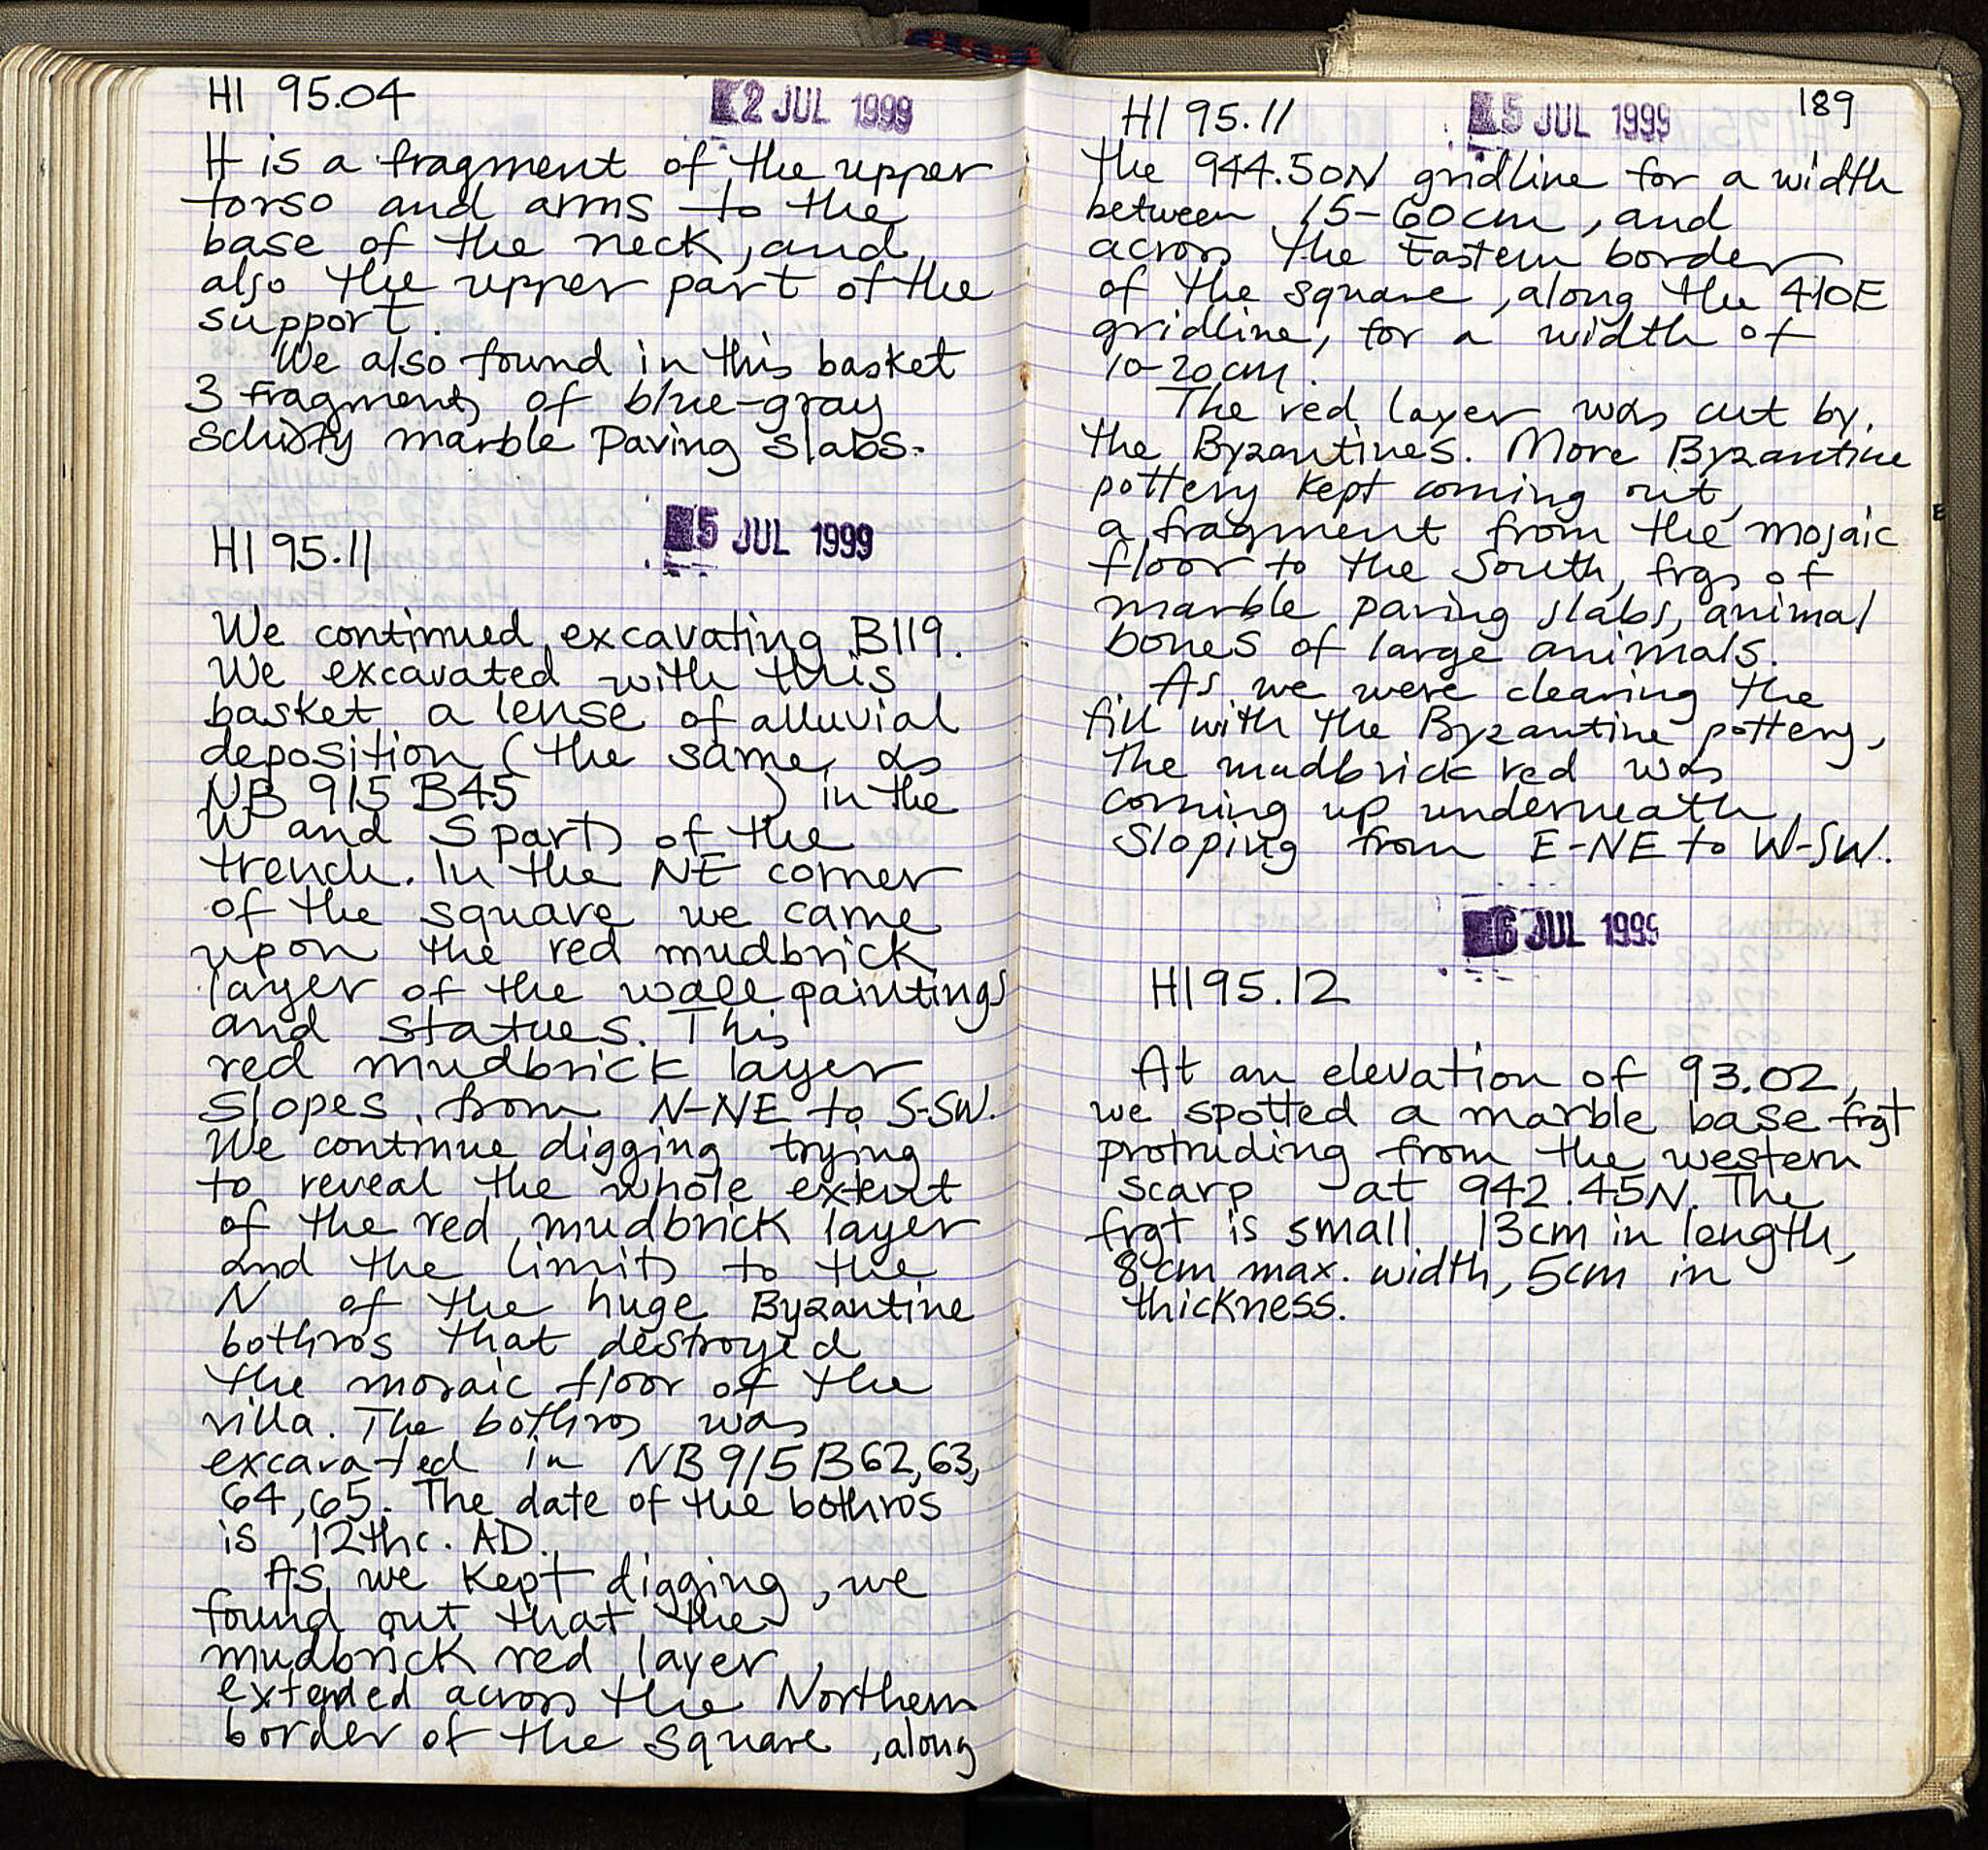 HI 95.04
2 JUL 1999
It is a fragment of the upper
torso and arms to the
base of the neck, and
also the upper part of the
support.
We also found in this basket
3 fragments of blue-gray
schisty marble paving slabs.
5 JUL 1999
HI 95.11
We continued excavating B119.
We excavated with this
basket a lense of alluvial
deposition (the same as
NB 915 B45 ) in the
W and S parts of the
trench. In the NE corner
of the square we came
upon the red mudbrick
layer of the wall paintings
and statues. This
red mudbrick layer
slopes from N-NE to S-SW.
We continue digging trying
to reveal the whole extent
of the red mudbrick layer
and the limits to the
N of the huge Byzantine
bothros that destroyed
the mosaic floor of the
villa. The bothros was
excavated in NB 915 B62, 63,
64, 65. The date of the bothros
is 12th c. AD.
As we kept digging, we
found out that the
mudbrick red layer
extended across the Northern
border of the square, along
189
HI 95.11
5 JUL 1999
the 944.50N gridline for a width
between 15-60cm, and
across the Eastern border
of the square, along the 410E
gridline, for a width of
10-20cm.
The red layer was cut by
the Byzantines. More Byzantine
pottery kept coming out,
a fragment from the mosaic
floor to the South, frgs of
marble paving slabs, animal
bones of large animals.
As we were clearing the
fill with the Byzantine pottery,
the mudbrick red was
coming up underneath,
sloping from E-NE to W-SW.
6 JUL 1999
HI 95.12
At an elevation of 93.02,
we spotted a marble base frgt
protruding from the western
scarp at 942.45N. The
frgt is small 13cm in length,
8cm max. width, 5cm in
thickness.